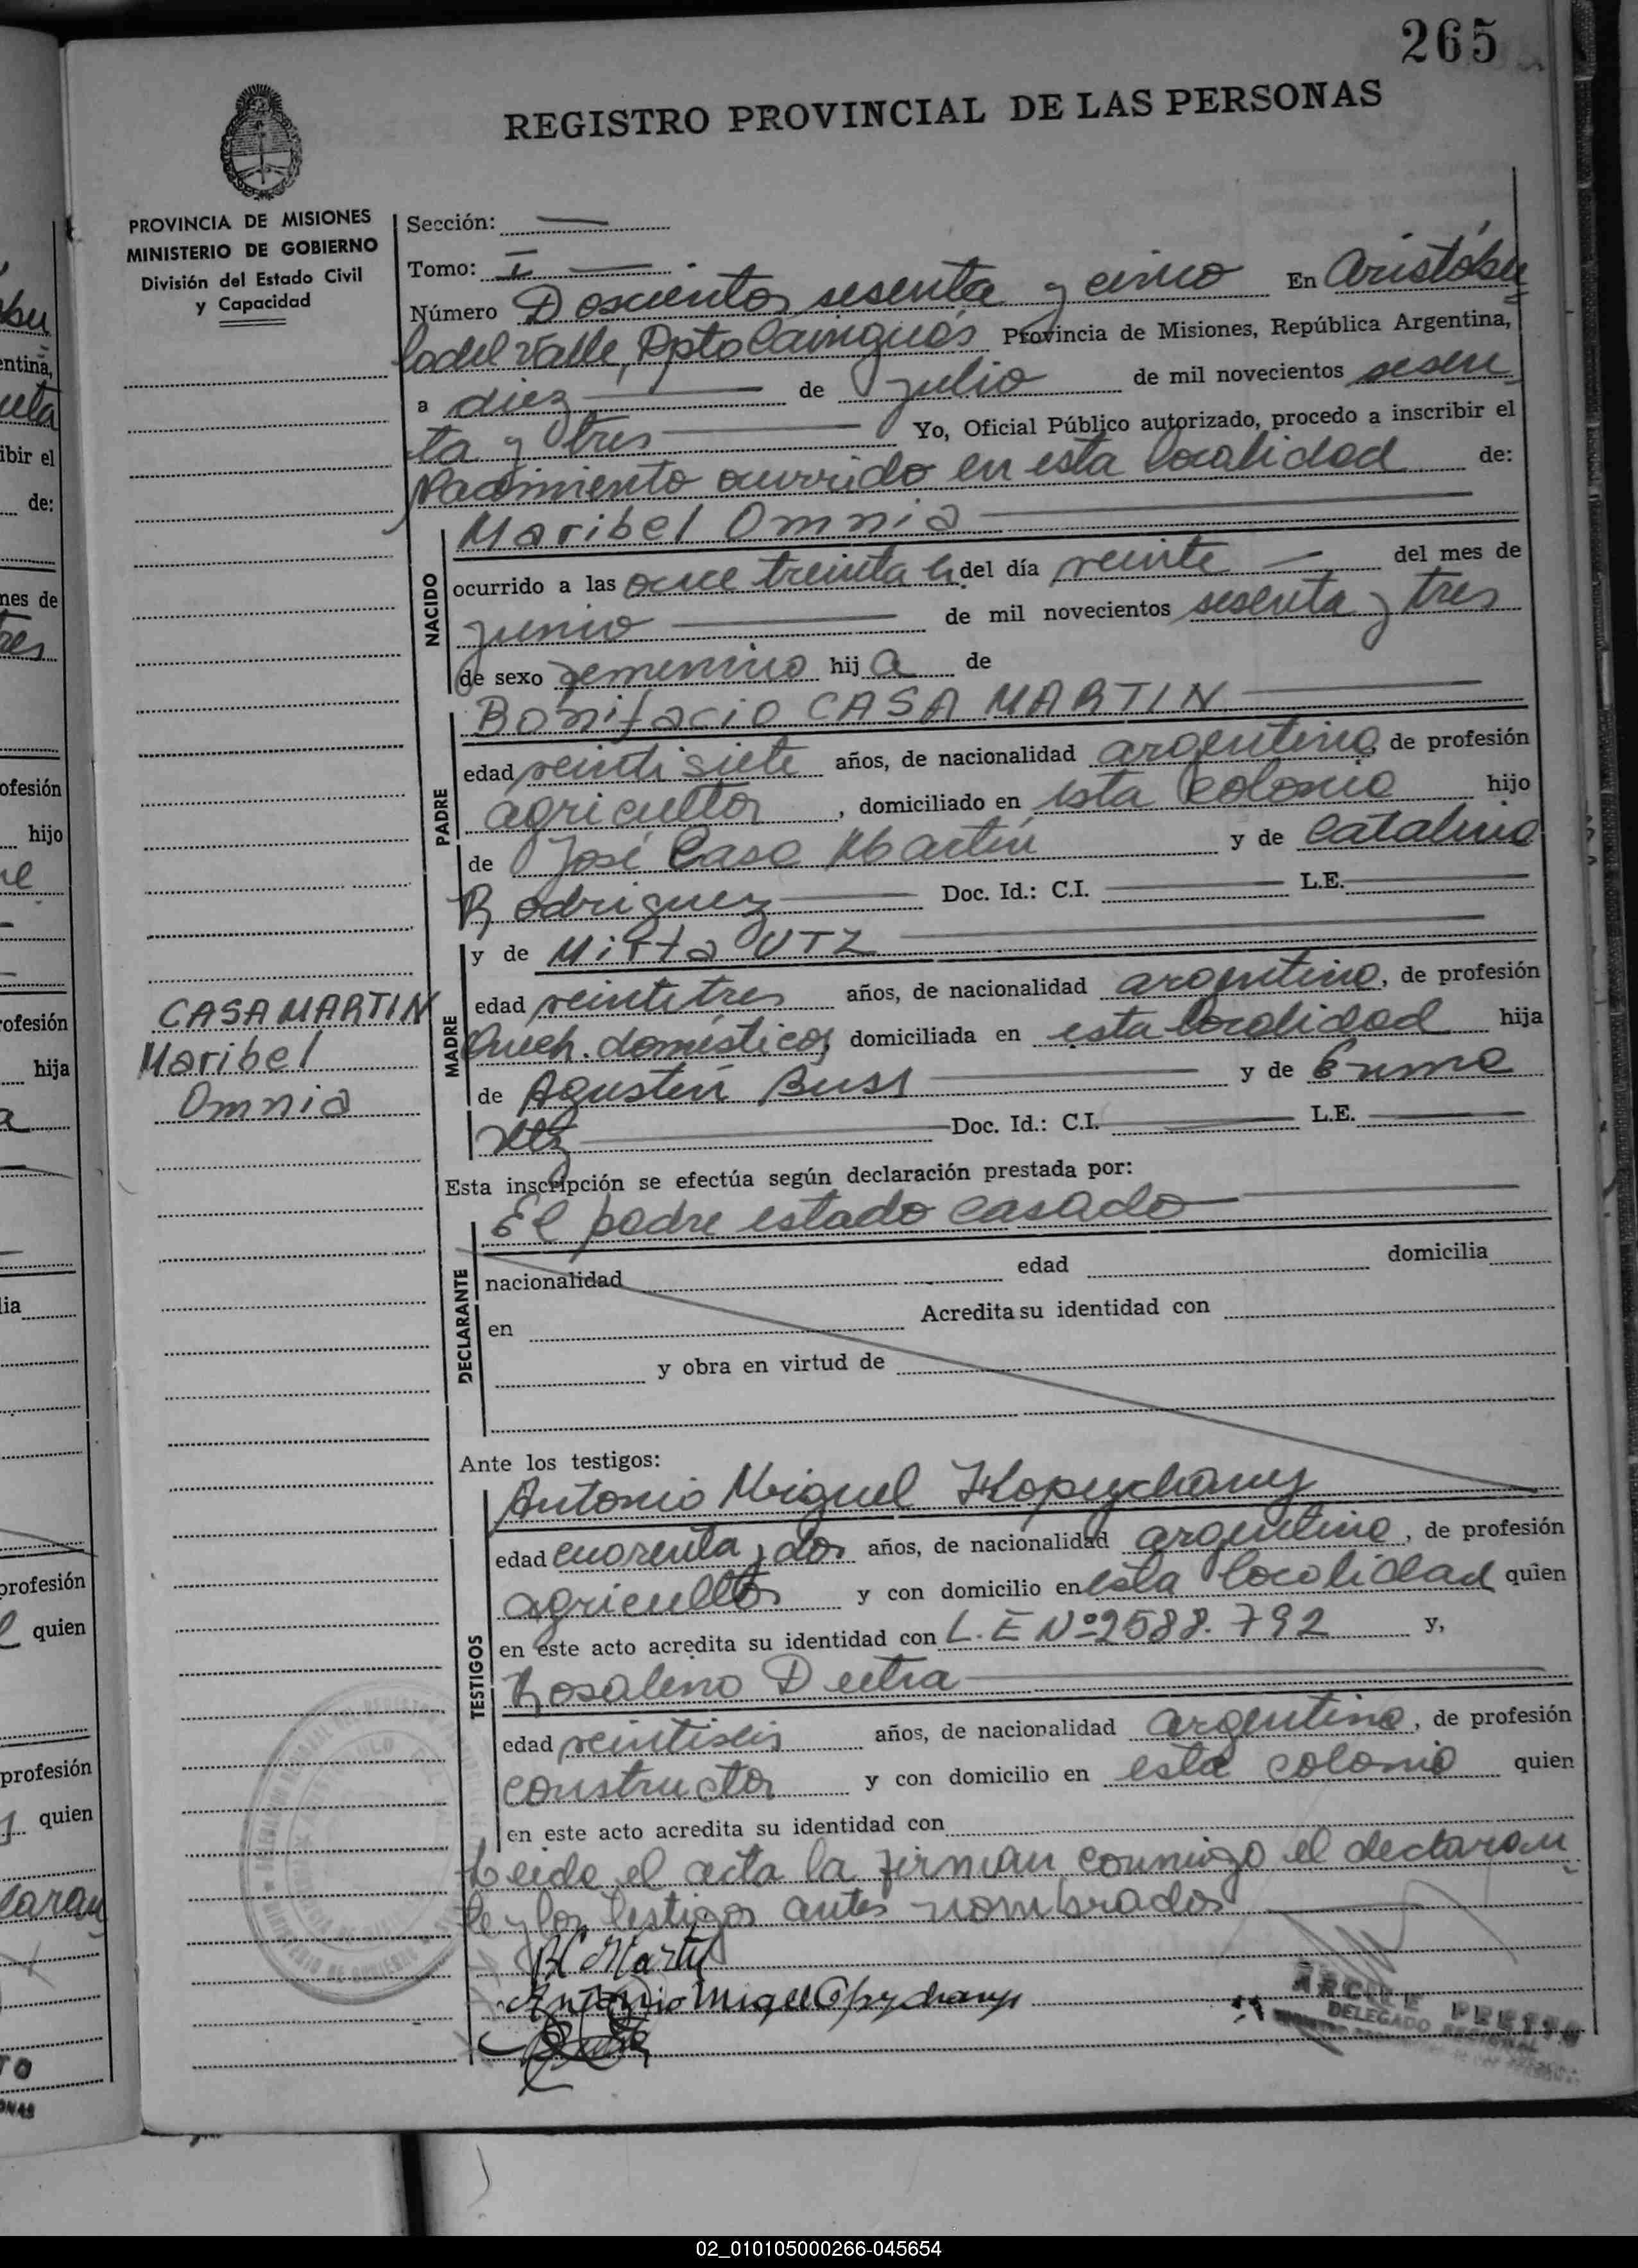 265
REGISTRO PROVINCIAL DE LAS PERSONAS
PROVINCIA DE MISIONES
MINISTERIO DE GOBIERNO
División del Estado Civil
y Capacidad
Sección:
Tomo: I
Número Doscientos sesenta y cinco En Aristóbu
lo del Valle, Dpto Cainguás Provincia de Misiones, República Argentina,
a diez de julio de mil novecientos sesen
ta y tres Yo, Oficial Público autorizado, procedo a inscribir el
Nacimiento ocurrido en esta localidad de:
NACIDO
Maribel Omnia
ocurrido a las once treinta h. del día veinte del mes de
junio de mil novecientos sesenta y tres
de sexo femenino hija de
PADRE
Bonifacio CASA MARTIN
edad veintisiete años, de nacionalidad argentino de profesión
agricultor, domiciliado en esta Colonia hijo
de José Casa Martín y de Catalina
Rodriguez Doc. Id.: C.I. L.E.
MADRE
y de Mirta UTZ
edad veintitres años, de nacionalidad argentina, de profesión
Queh. domésticos domiciliada en esta localidad hija
de Agustín Buss y de Emma
Utz Doc. Id.: C.I. L.E.
CASA MARTIN
Maribel
Omnia
Esta inscripción se efectúa según declaración prestada por:
El padre estado casado
DECLARANTE
nacionalidad edad domicilia
en Acredita su identidad con
y obra en virtud de
Ante los testigos:
TESTIGOS
Antonio Miguel Kopychany
edad cuarenta y dos años, de nacionalidad argentino, de profesión
agricultor y con domicilio en esta localidad quien
en este acto acredita su identidad con L.E Nº 2588.792 y,
Rosalino Dutra
edad veintiseis años, de nacionalidad argentino, de profesión
constructor y con domicilio en esta colonia quien
en este acto acredita su identidad con
Leida el acta la firman conmigo el declaran
te y los testigos antes nombrados
B C Martin
Antonio Miguel Opychany
DELEGADO
02_010105000266-045654